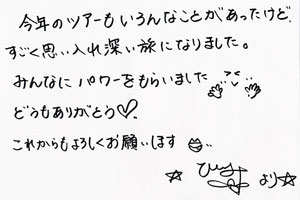 今年のツアーもいろんなことがあったけど
すごく思い入れ深い旅になりました。
みんなにパワーをもらいました
どうもありがとう♡
これからもよろしくお願いします
☆ より☆